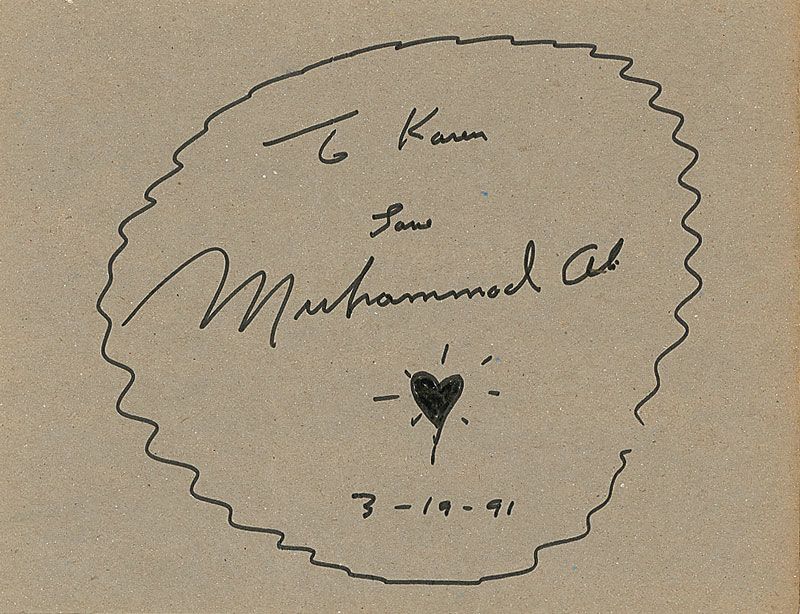 To Karen
Love
Muhammad Ali
3-19-91